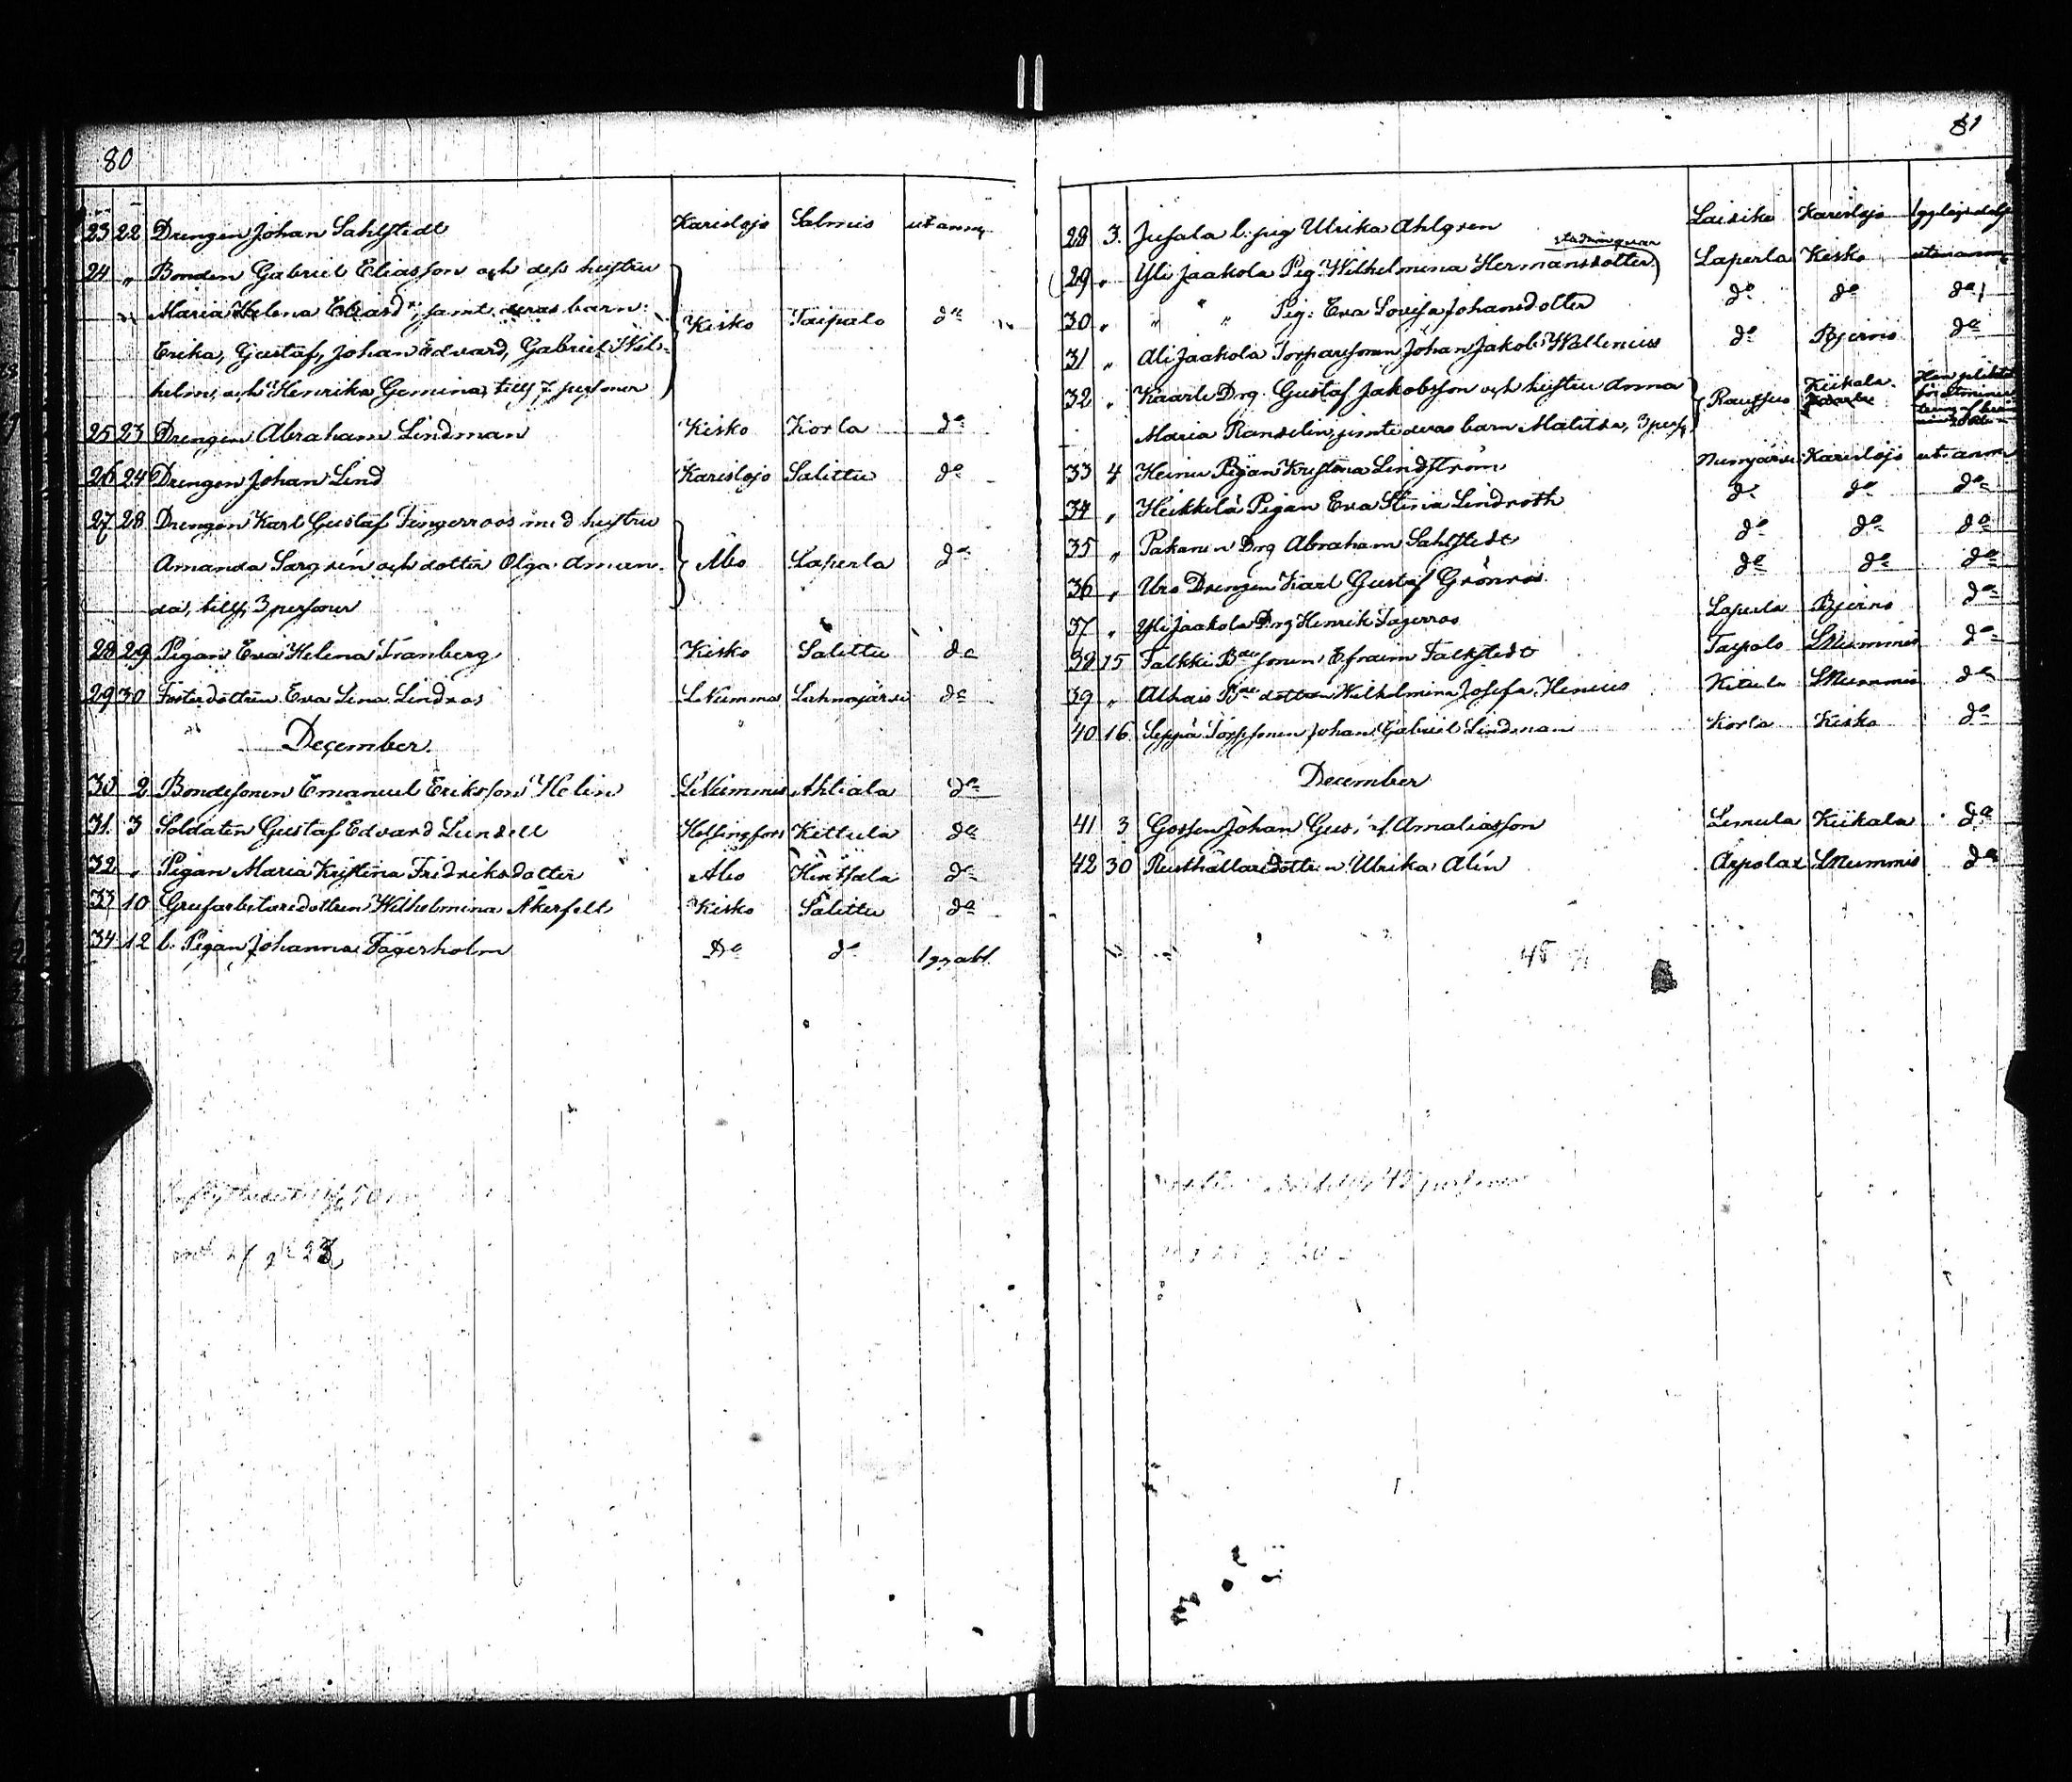 80
23 22 Drengen Johan Sahlstedt Karislojo Salmis utanm
24 " Bonden Gabriel Eliasson och dess hustru
Maria Helena samt deras barn:
Erika, Gustaf, Johan Edvard, Gabriel Wil- Kisko Taipalo do
helm, och Henrika Gemina, tills 7 personer
25 23 Drengen Abraham Lindman Kisko Korla do
26 24 Drengen Johan Lind Karislojo Salittu do
27 28 Drengen Karl Gustaf Fingerroos med hustru
Amanda och dotter Olga Aman- Åbo Laperla do
da, tills 3 personer
28 29 Pigan Eva Helena Tranberg Kisko Salittu do
29 30 Fosterdottren Eva Lina Lindros Lahnajärvi do
December
30 2 Bondesonen Emanuel Eriksson Helin LNummis Ahtiala do
31 3 Soldaten Gustaf Edvard Lundell Helsingfors Kettula do
32 " Pigan Maria Kristina Fridriksdotter Åbo do
33 10 Grufarbetaredottren Wilhelmina Åkerfelt Kisko Salittu do
34 12 l. Pigan Johanna Fagerholm Do do 1 gg abl.
81
28 3. l. pig Ulrika Ahlgren Karislojo
29 " Yli Jaakola Pig. Wilhelmina Hermansdotter Laperla Kisko utanm
30 " " " Pig. Eva Lovisa Johansdotter do do do
31 " Ali Jaakola Torparesonen Johan Jakob Wallenius do Bjerno do
32 " Kaarle Drg. Gustaf Jakobsson och hustru Anna Kiikala
Maria jemte deras barn 3 pers.
33 4 Heinu Pigan Kristina Lindström Karislojo utanm
34 " Heikkilä Pigan Eva Stina Lindroth do do do
35 " Drg Abraham Sahlstedt do do do
36 " Drengen Karl Gustaf Grönroos do do do
37 " Yli Jaakola Drg Henrik Fagerroos Laperla Bjerno do
38 15 Falkki sonen Efraim Falkstedt Taipalo LNummis do
39 " dottren Wilhelmina Josefa LNummis do
40 16 Seppä Torpsonen Johan Gabriel Lindman Korla Kisko do
December
41 3 Gossen Johan Gustaf Amaliasson Lemula Kiikala do
42 30 Rusthållaredottren Ulrika Alin LNummis do
45